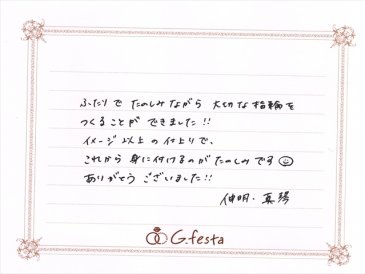 ふたりで たのしみながら 大切な指輪を
つくることが できました!!
イメージ以上の仕上りで、
これから 身に付けるのが たのしみです☺
ありがとう ございました!!
伸明・真琴
G.festa